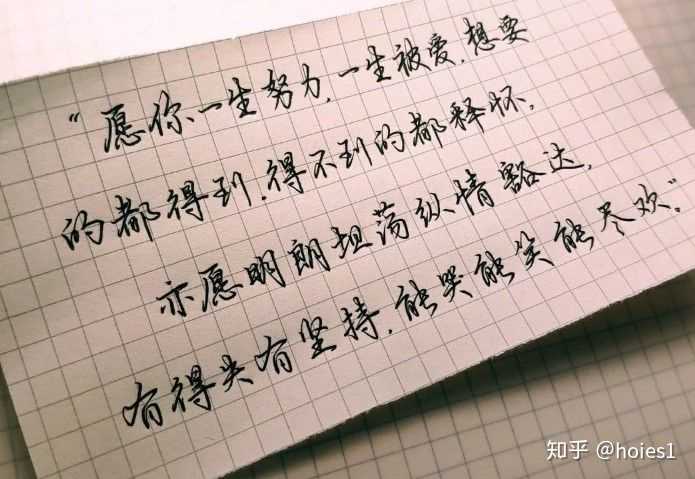 “愿你一生努力,一生被爱,想要
的都得到,得不到的都释怀,
亦愿明朗坦荡纵情豁达,
有得失有坚持,能哭能笑能尽欢。”
知乎 @hoies1